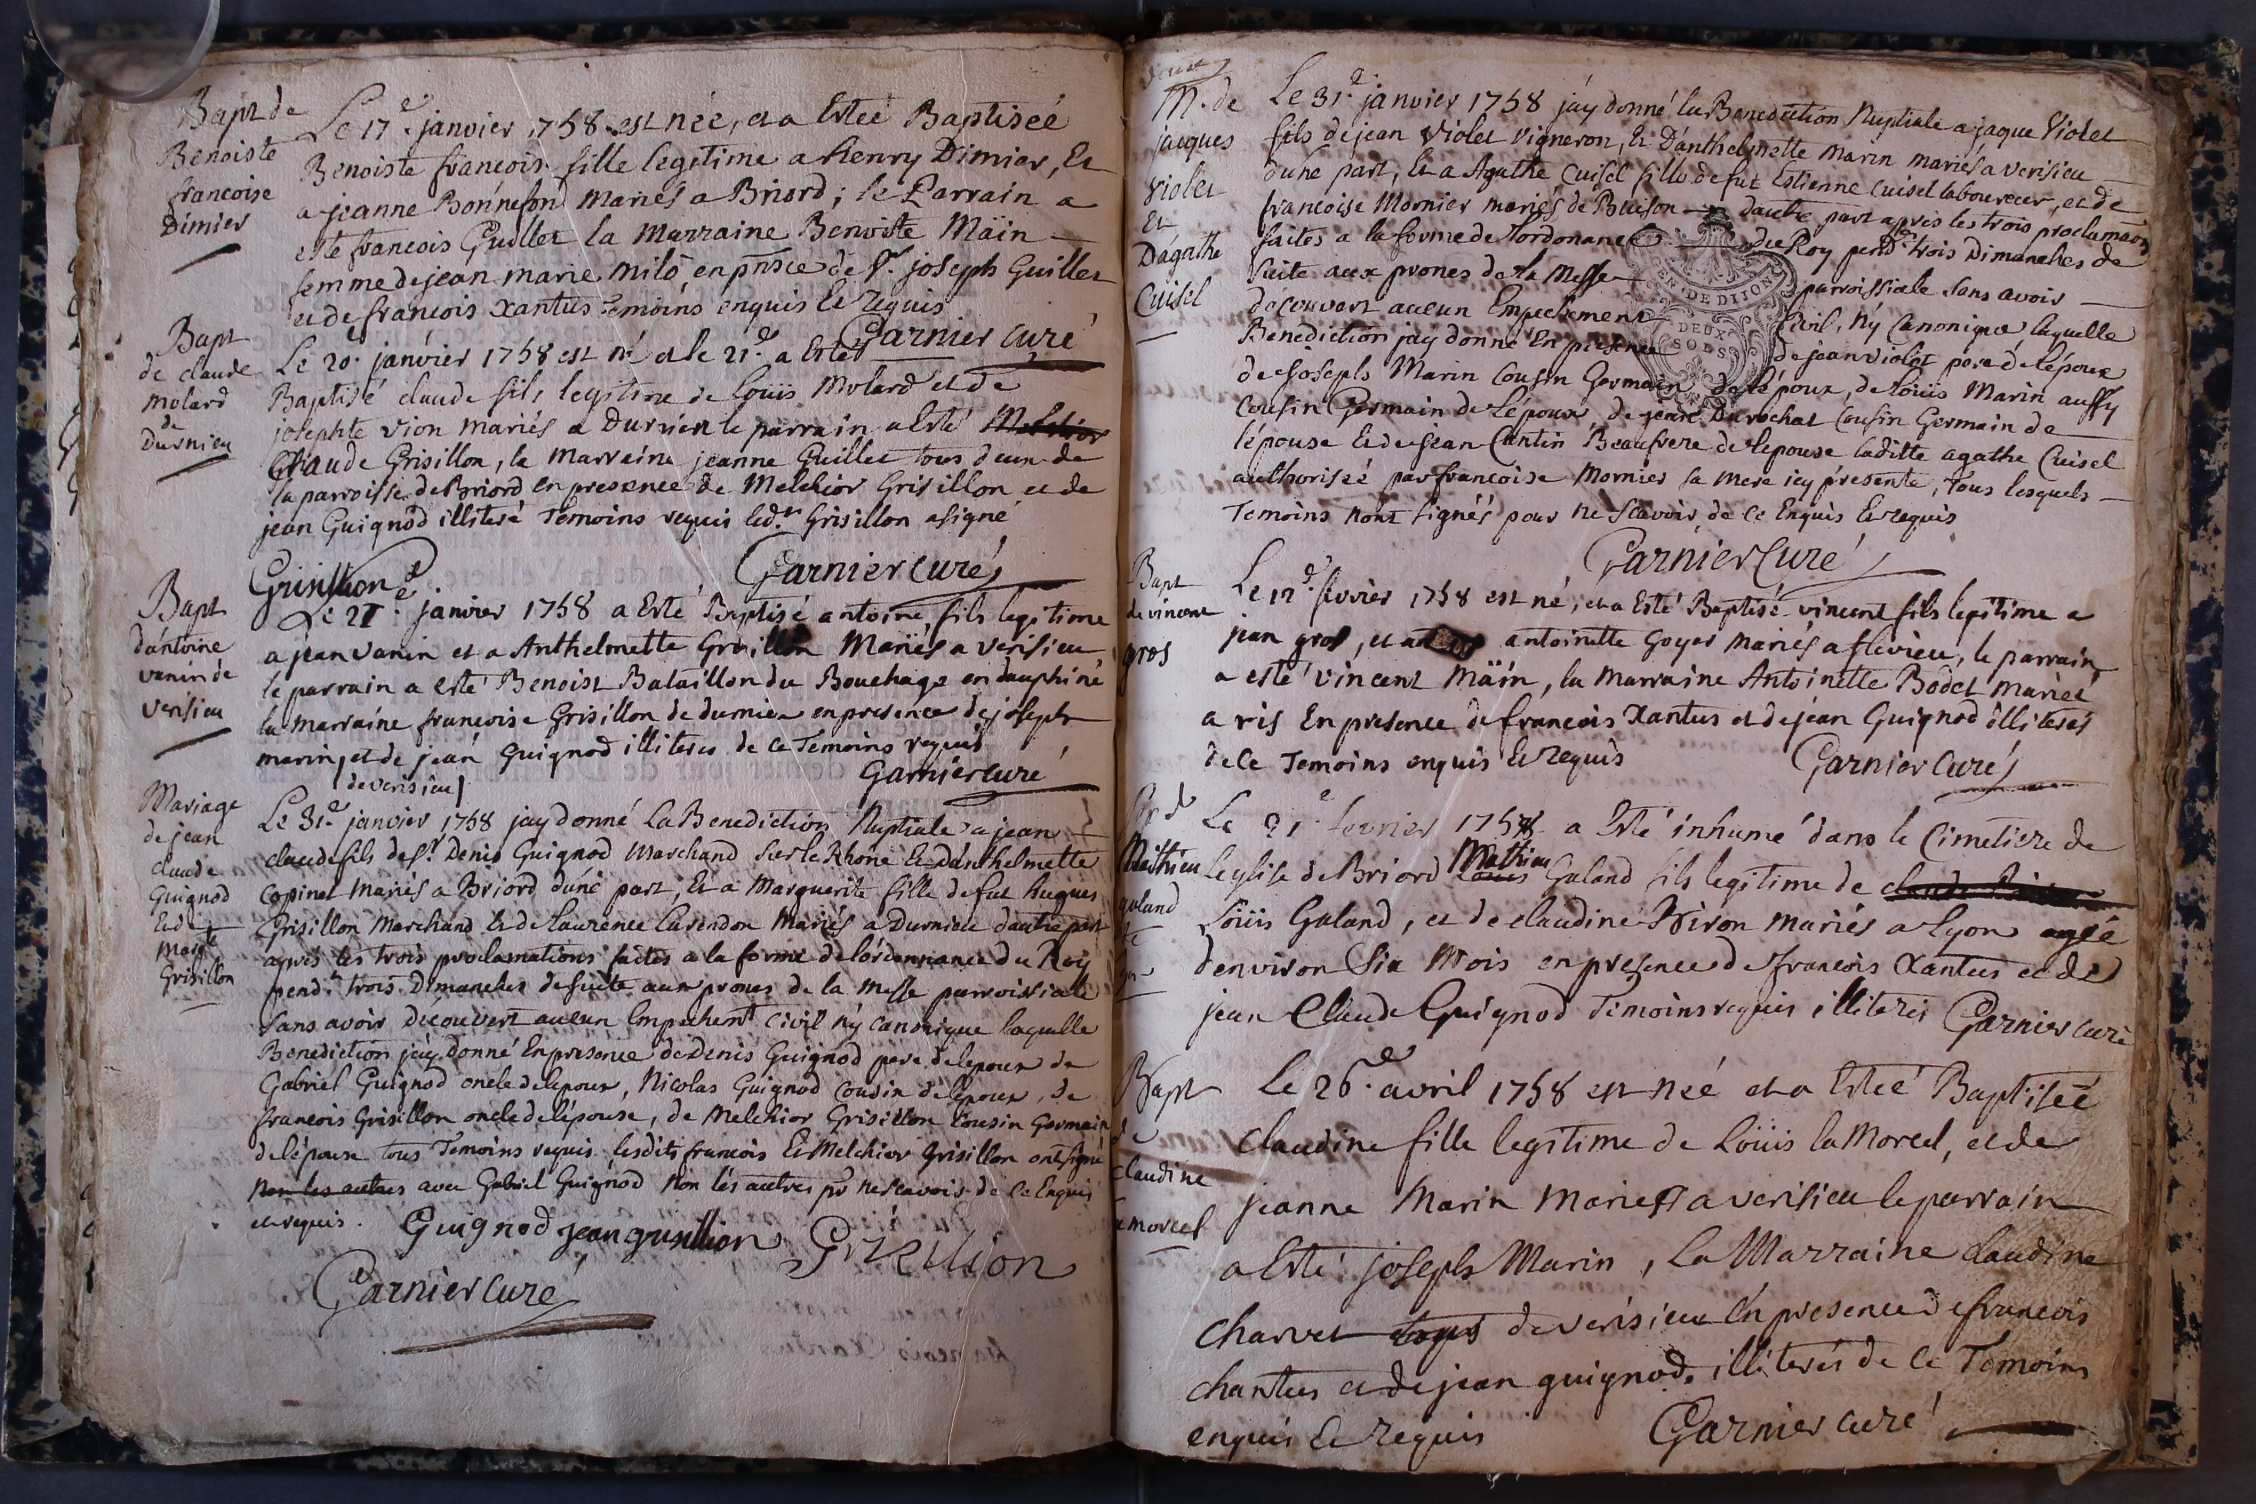 Bapt de
Benoiste
francoise
Dimier
Le 17e. janvier 1758 est née, et a Estéé Baptiséé
Benoiste francois fille legitime a henry Dimier, Et
a jeanne Bonnefond Mariés a Briord; le Parrain a
esté francois Guillet la Marraine Benoiste Mäin
femme de jean marie milo en pnsce de Sr. joseph Guillet
et de francois Xantus temoins enquis Et requis
Garnier curé
Bapt
de claude
molard
de
Durnieu
Le 20. janvier 1758 est né et le 21e. a Esté
Baptisé claude fils legitime de Loüis Molard et de
josephte vion mariés a Durnieu le parrain a Esté Melchior
Claude Grisillon, la marreine jeanne Guillet tous deux de
la parroisse de Briord en presence de Melchior Grisillon et de
jean Guignod illiteré Temoins requis led.t Grisillon a signé
Garnier curé
Grisillion
Bapt
d'antoine
vanin de
verisieu
Le 27e. janvier 1758 a Esté Baptisé antoine, fils legitime
a jean vanin et a Anthelmette Grisillon Mariés a verisieu
le parrain a esté Benoist Bataillon du Bouchage en dauphiné
la marraine francoise Grisillon de durnieu en presence de joseph
marin, et de jean Guignod illiteres de ce Temoins requis
de verisieu
Garnier curé
Mariage
de jean
claude
Guignod
Et de
Margte
Grisillon
Le 31e. janvier 1758 jay donné La Benediction Nuptiale a jean
claude fils de Sr. Denis Guignod Marchand sur le Rhone Et D'anthelmette
Copinet Mariés a Briord d'une part, Et a Marguerite fille de fut hugues
Grisillon Marchand Et de Laurence Larendon Mariés a Durnieu d'autre part
apres les trois proclamations faites a la forme de l'ordonnance du Roy
pend.t trois Dimanches de suite aux prones de la Messe parroissiale
sans avoir decouvert aucun Empechemt civil ny canonique laquelle
Benediction j'ay donné En presence de Denis Guignod pere de lepoux de
Gabriel Guignod oncle de lepoux, Nicolas Guignod cousin de lépoux, de
francois Grisillon oncle de lépouse, de Melchior Grisillon Cousin Germain
de lépouse tous Temoins requis lesdits francois Et Melchior Grisillon ont signé
non les autres avec Gabriel Guignod Non les autres pr ne scavoir de ce Enquis
et requis.
Guignod jean grisillion Grizellion
Garnier curé
M. de
jacques
violet
Et
D'agathe
Cuisel
Le 31e. janvier 1758 j'ay donné la Benediction Nuptiale a jaque Violet
fils de jean Violet vigneron, Et D'anthelmette Marin mariés a verisieu
dune part, Et a Agathe Cuisel fille de fut Estienne Cuisel laboureur, et de
francoise Mornier mariés de Buison dautre part apres les trois proclamaons
faites a la forme de lordonance du Roy pendt trois Dimanches de
suite aux prones de la Messe parroissiale sans avoir
decouvert aucun Empechement Civil, Ny Canonique laquelle
Benediction jay donné En presence de jean violet pere de lépoux
de joseph Marin Cousin Germain de lépoux, de Loüis Marin aussy
cousin Germain de Lépoux de jean Durochat Cousin Germain de
lépouse Et de jean Cantin Beaufrere de lepouse laditte agathe Cuisel
authoriséé par francoise Mornier sa mere icy présente, Tous lesquels
Temoins Nont signés pour ne Scavoir, de ce Enquis Et requis
Garnier Curé
GEN. DE DIJON
DEUX
SOLS
Bapt
de vincent
gros
Le 12e. fevrier 1758 est né, et a Esté Baptisé vincent fils legitime a
jean gros, et a antoinette Goyet Mariés a flevieu, le parrain
a esté vincent Mäin, la Marraine Antoinette Bodet Mariée
a ris En presence de francois Xantus et de jean Guignod illiterés
de ce Temoins enquis Et requis
Garnier Curé
Mathieu
galand
Le 21e. fevrier 1758 a Esté inhumé dans le Cimetiere de
Leglise de Briord Mathieu Galand fils legitime de
Loüis Galand, et de claudine Kiron mariés a Lyon agé
d'environ Six Mois en presence de francois Xantus et de
jean Claude Guignod Temoins requis illiterés Garnier curé
Bapt
de
claudine
la morcel
Le 26e. avril 1758 est née et a Estéé Baptiséé
Claudine fille legitime de Loüis la Morcel, et de
jeanne Marin Mariés a verisieu le parrain
a Esté joseph Marin, La Marraine claudine
charvet de verisieu En presence de francois
chantus et de jean guignod. illiterés de ce Temoins
enquis Et requis
Garnier curé